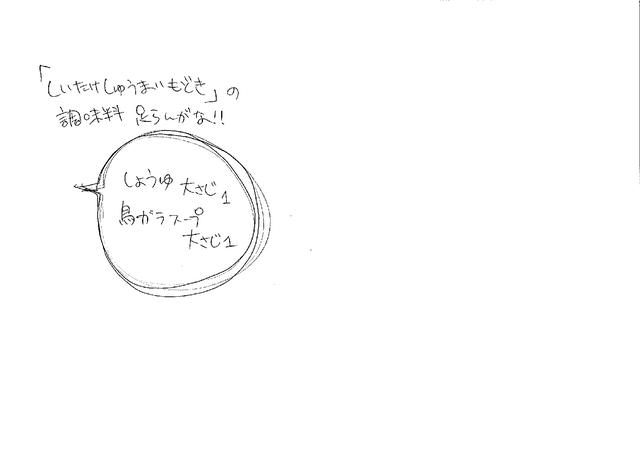 「しいたけしゅうまいもどき」の
調味料 足らんがな!!
しょうゆ 大さじ1
鳥ガラスープ
大さじ1